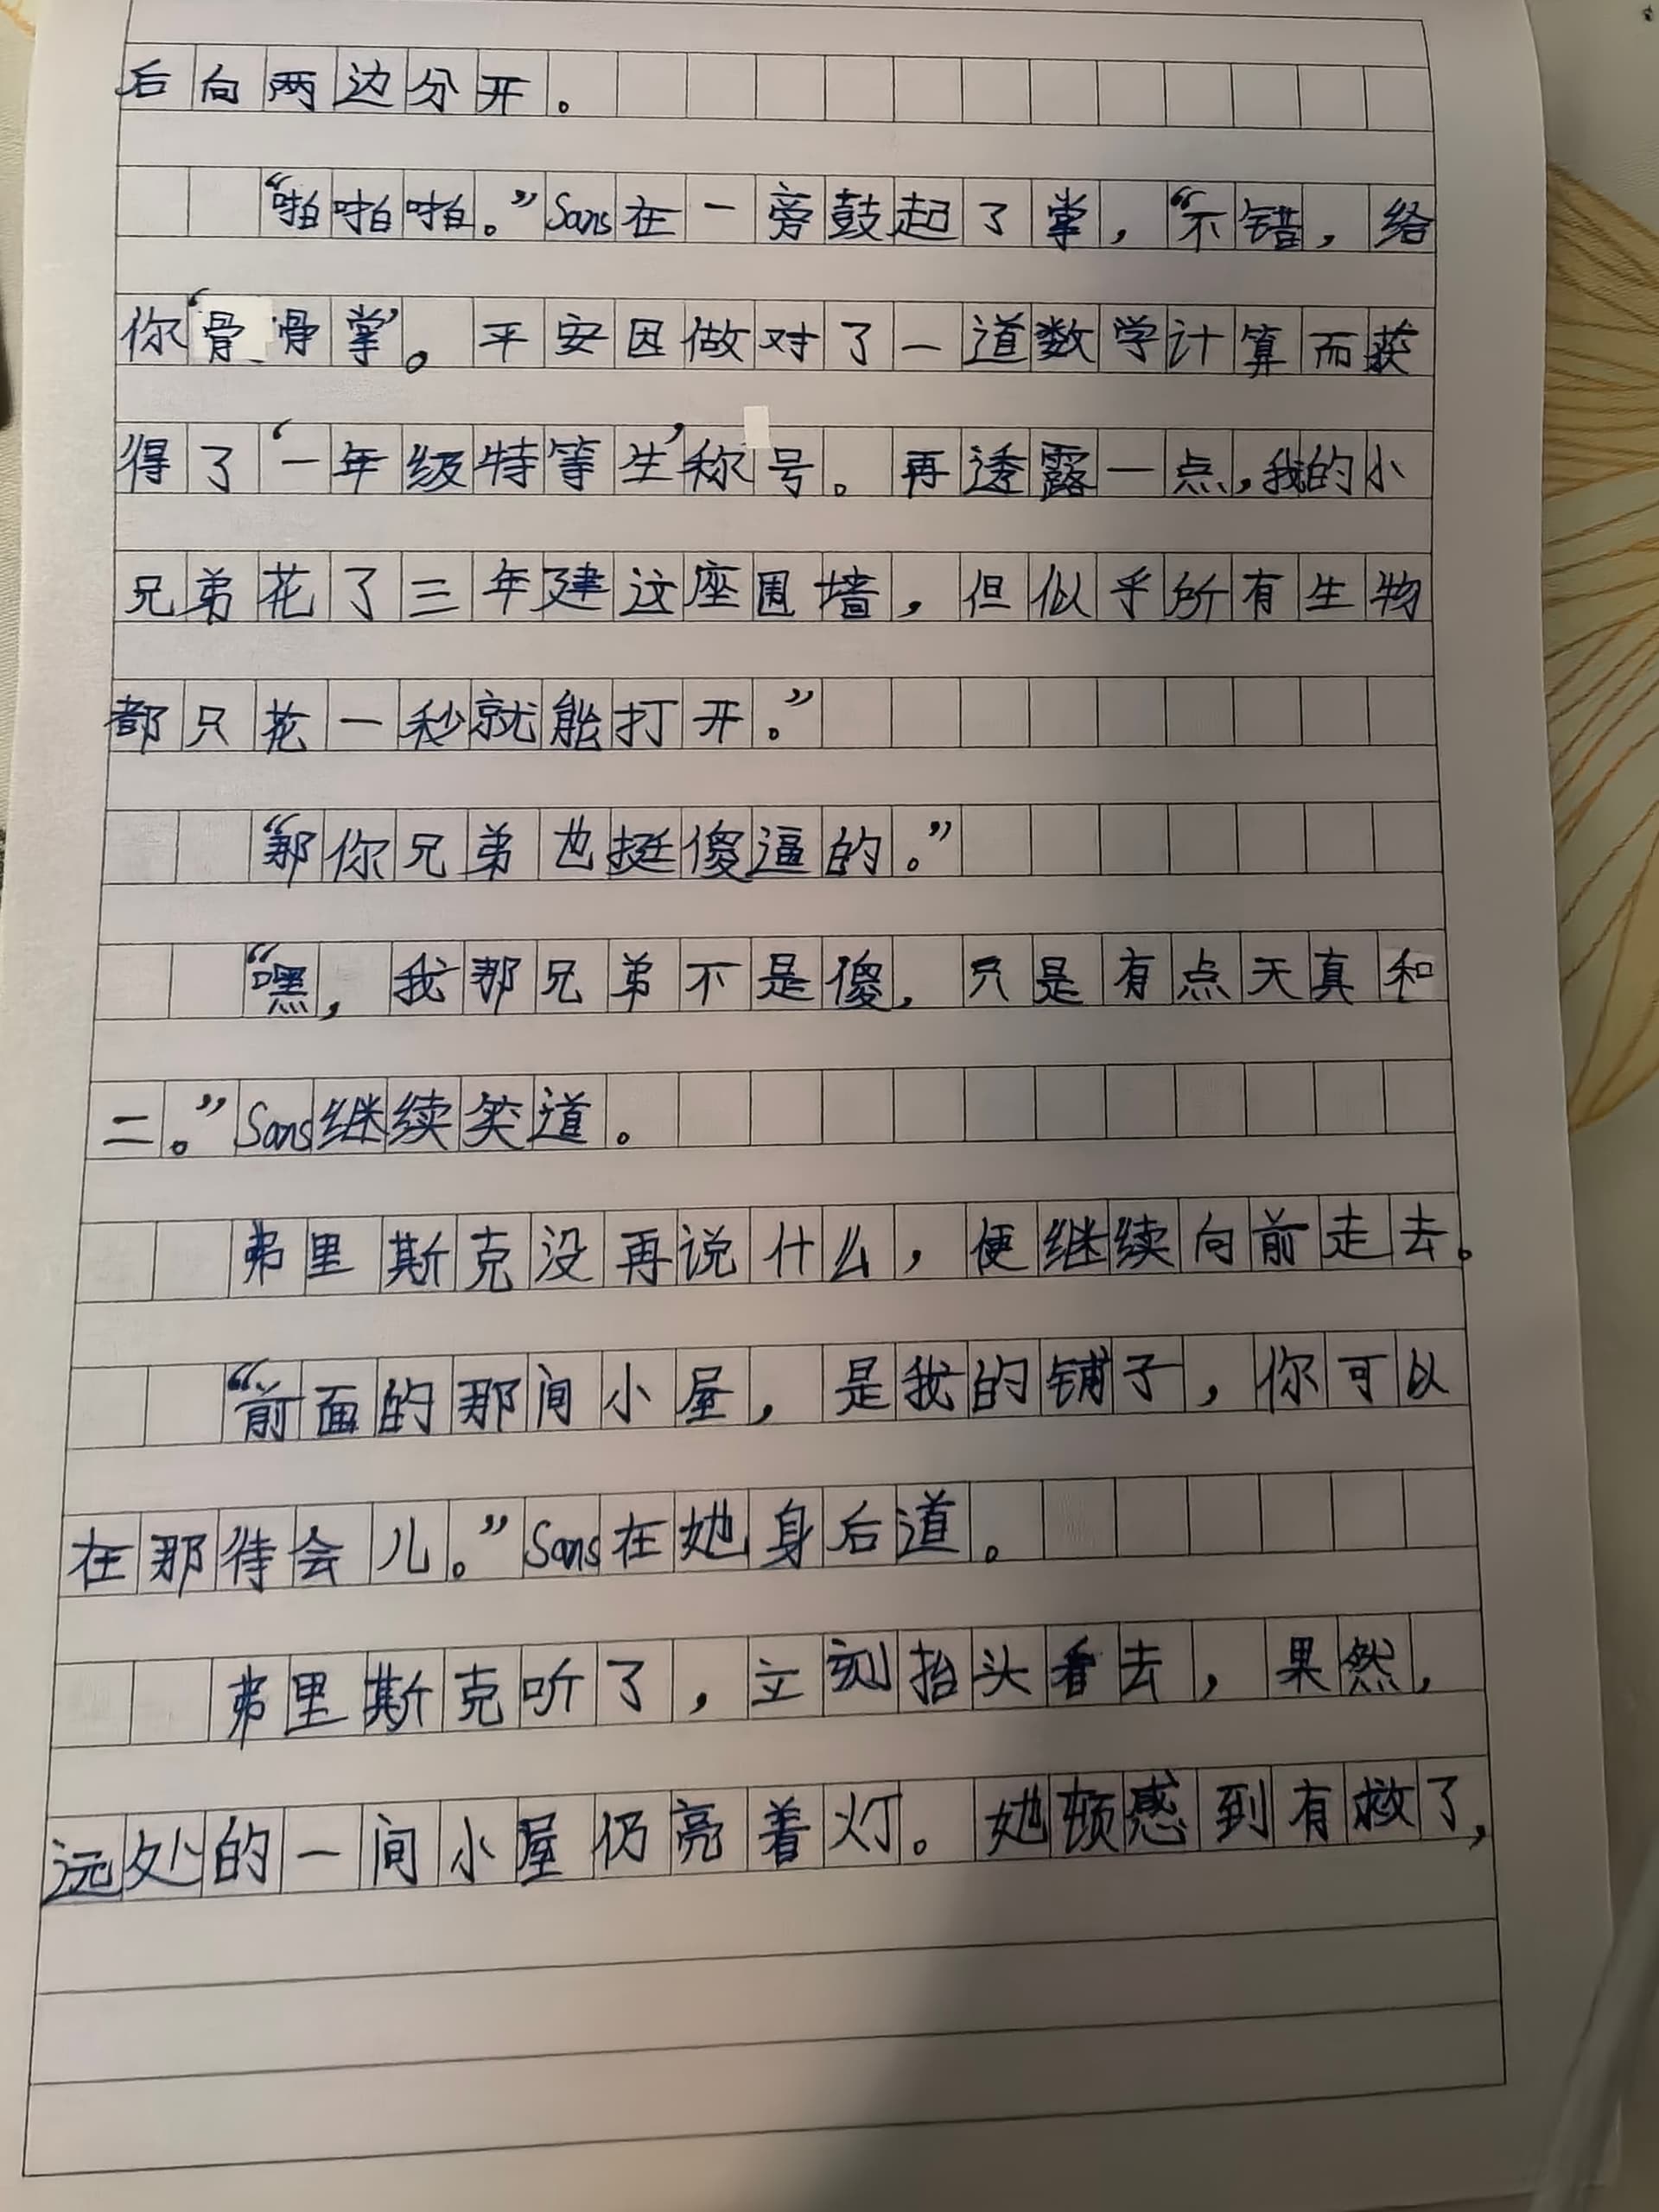 后向两边分开。
“啪啪啪。”Sans在一旁鼓起了掌，“不错，给
你‘骨骨掌’。平安因做对了一道数学计算而获
得了‘一年级特等生’称号。再透露一点，我的小
兄弟花了三年建这座围墙，但似乎所有生物
都只花一秒就能打开。”
“那你兄弟也挺傻逼的。”
“嘿，我那兄弟不是傻，只是有点天真和
二。”Sans继续笑道。
弗里斯克没再说什么，便继续向前走去。
“前面的那间小屋，是我的铺子，你可以
在那待会儿。”Sans在她身后道。
弗里斯克听了，立刻抬头看去，果然，
远处的一间小屋仍亮着灯。她顿感到有救了，